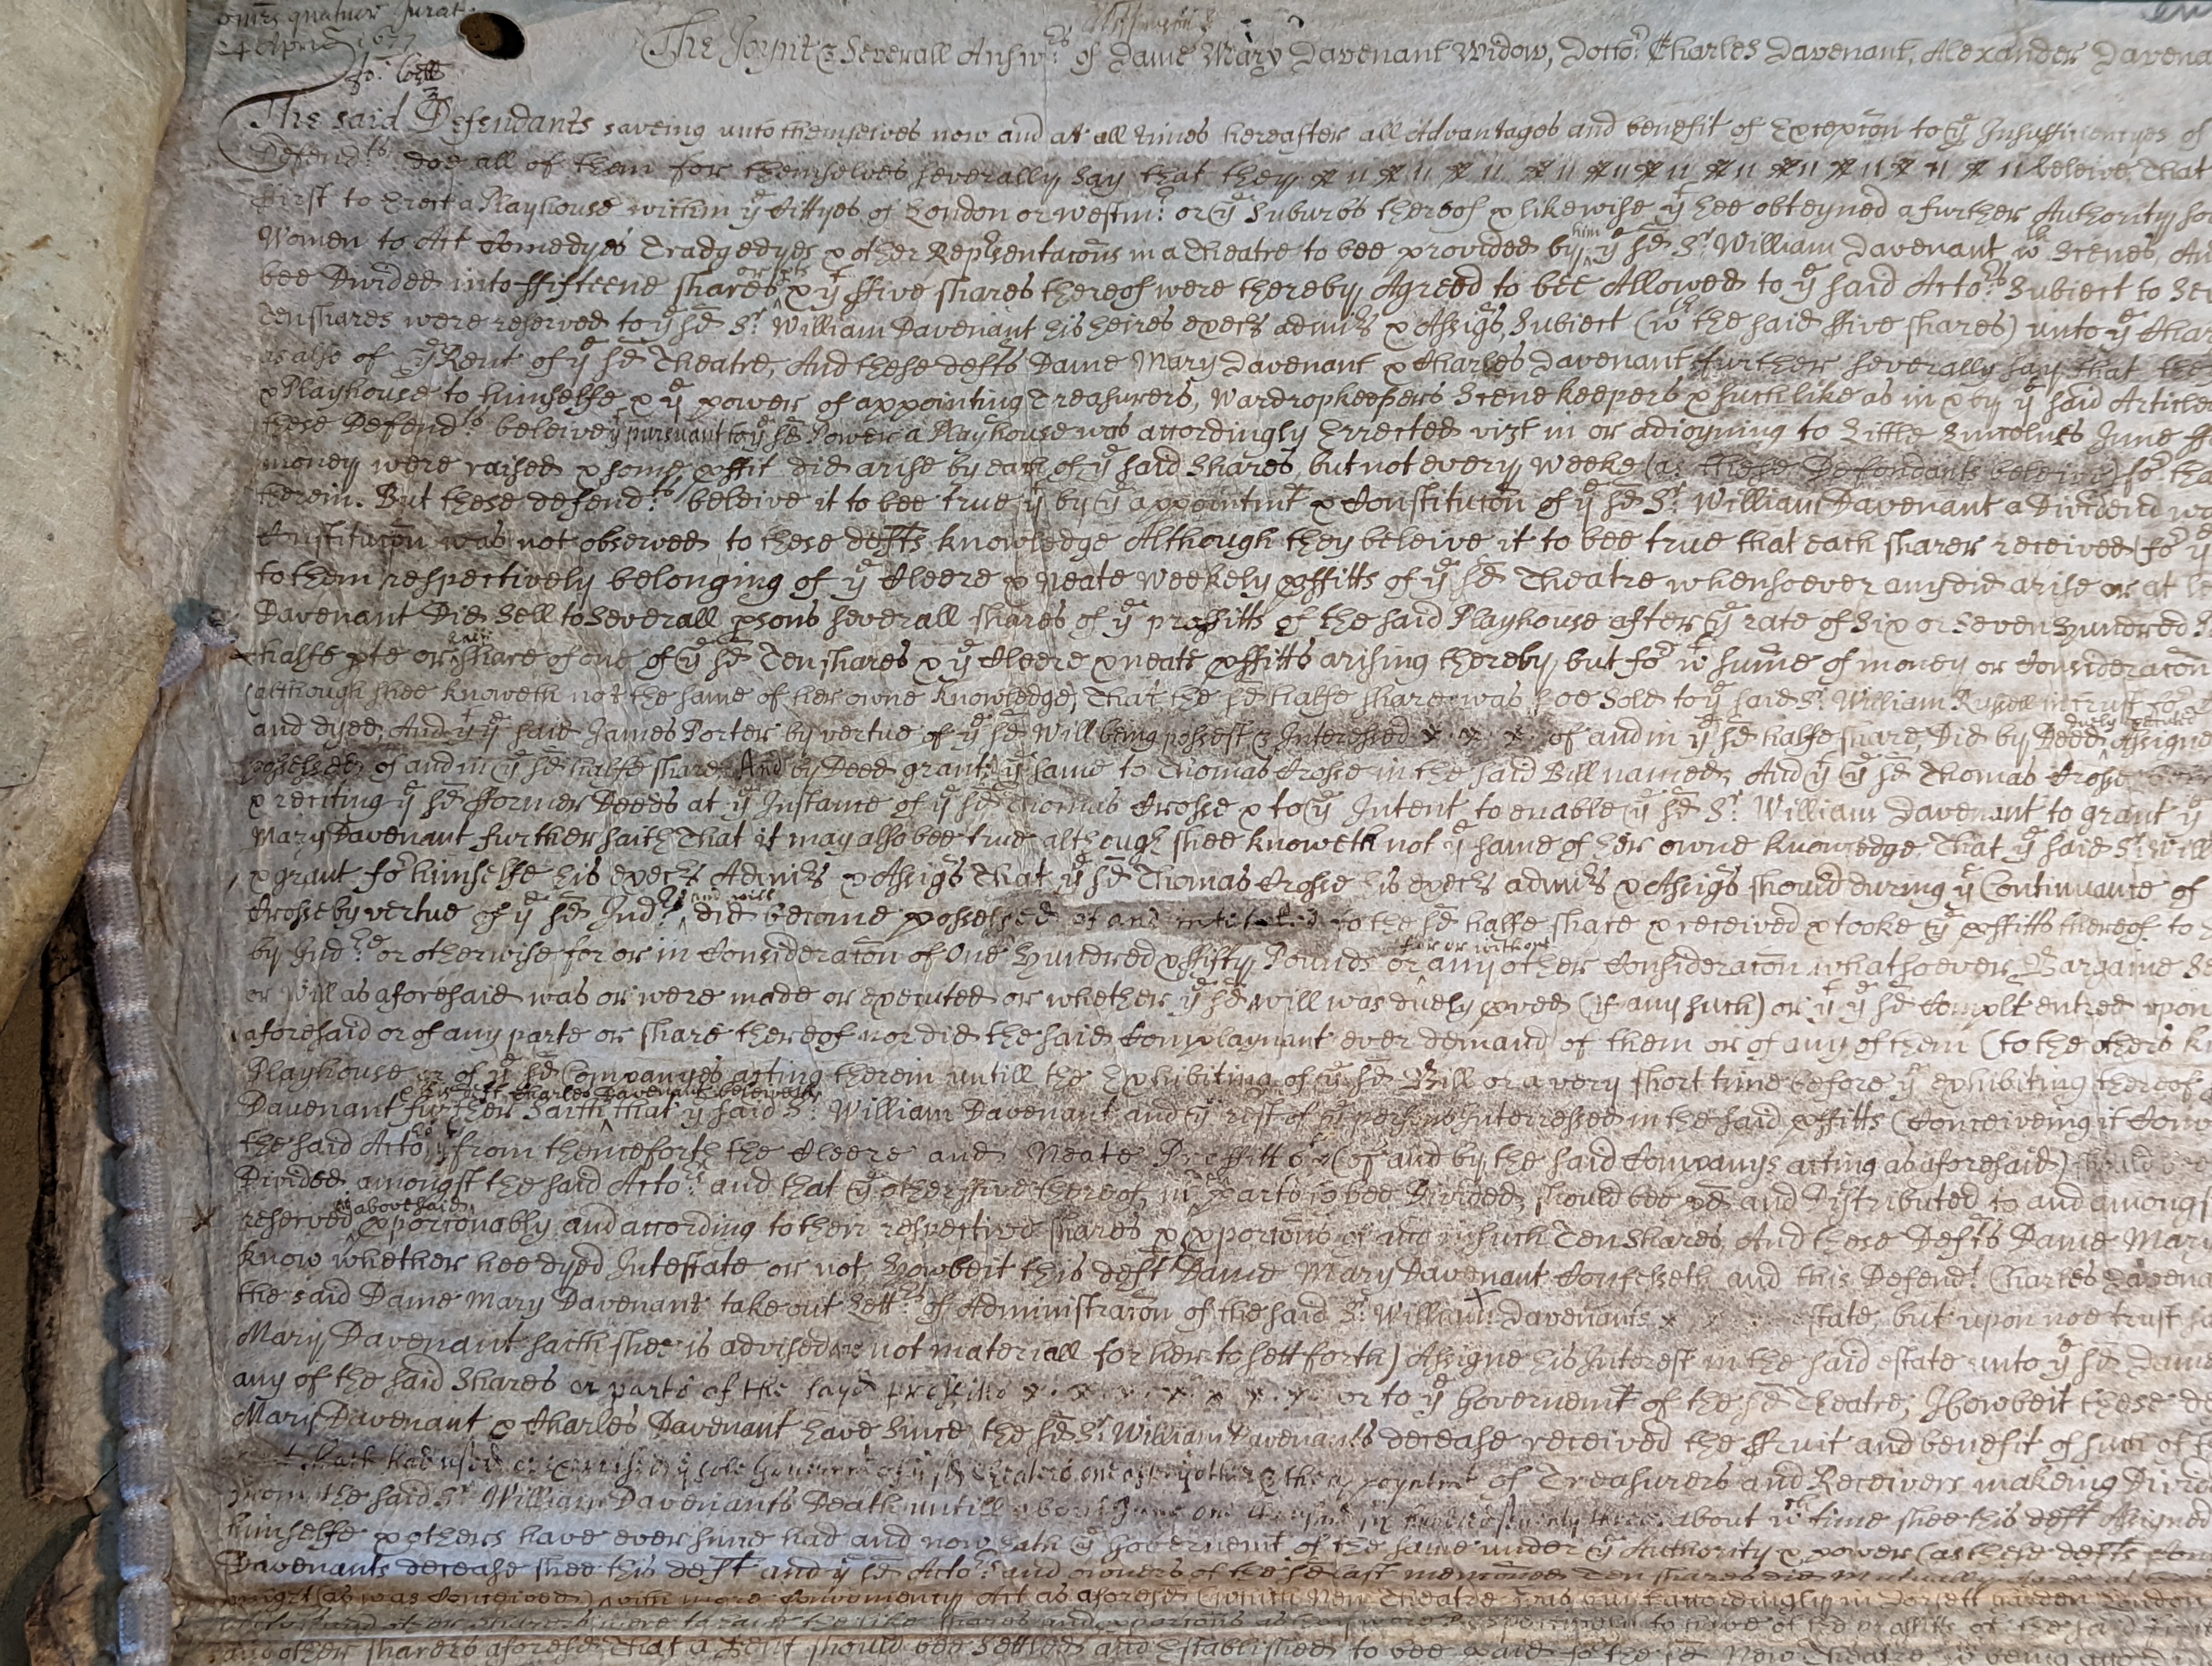 quatuor Jurat
24 April 1677
The Joynt & Severall Answrs of Dame Mary Davenant Widow, Doctor Charles Davenant, Alexander Davena
The said Defendants saveing unto themselves now and at all times hereafter all Advantages and benefit of Excepcon to ye Insufficiencyes of
Defendts doe all of them for themselves severally say that they beleive That
first to Erect a Playhouse within ye Cittyes of London or Westmr or ye Suburbs thereof & likewise yt hee obteyned a further Authority
Women to Act Comedyes Tradgedyes & other Represntacons in a Theatre to bee provided by him ye sd Sr William Davenant wth Scenes, An
bee Divided into ffifteene shares & yt ffive shares thereof were thereby Agreed to bee Allowed to ye said Actors Subject to
Ten shares were reserved to ye sd Sr William Davenant his heires execrs admrs & Assigs, Subject (wth the said ffive shares) unto ye Char
as alsoe of ye Rent of ye sd Theatre, And these defts Dame Mary Davenant & Charles Davenant further severally say that the
& Playhouse to himselfe & ye power of appointing Treasurers, Wardropkeepers Scenekeepers & such like as in & by ye said Article
these Defendts beleive yt pursuant to ye sd Power a Playhouse was accordingly Errected vizt in or adjoyning to Little Lincolnes Inne ff
money were raised & some pffit did arise by each of ye said Shares, but not every Weeke (as these Defendants beleive) for tha
therein. But these defendts beleive it to bee true yt by ye appointmt & Constitucon of ye sd Sr William Davenant a Dividend
Constitucon was not observed to these defts knowledge Although they beleive it to bee true that each sharer received for
to them respectively belonging of ye Cleere & Neate Weekely pffitts of ye sd Theatre whensoever any did arise or at
Davenant Did Sell to Severall psons severall shares of ye proffitts of the said Playhouse after ye rate of Six or Seven Hundred
halfe pte or halfe share of one of ye sd Ten shares & ye Cleere & neate pffitts arising thereby, but for wt summe of money or Consideracon
(although shee knoweth not the same of her owne knowledge) That the sd halfe share was soe Sold to ye said Sr William Russell in trust for
and dyed, And yt ye said James Porter by vertue of ye sd Will being possest & Interessed of and in ye sd halfe share, Did by Deed duely executed Assigne
possessed of and in ye sd halfe share And by Deed grant ye same to Thomas Crosse in the said Bill named, And yt ye sd Thomas Crosse
& reciting ye sd fformer Deeds at ye Instance of ye sd Thomas Crosse & to ye Intent to enable ye sd Sr William Davenant to grant
Mary Davenant further saith That it may alsoe bee true although shee knoweth not ye same of her owne knowledge, That ye said Sr Will
& grant for himselfe his execrs Admrs & Assigs That ye sd Thomas Crosse his execrs admrs & Assigs should during ye Continuance of
Crosse by vertue of ye sd Indre and will did become possessed of and intituled to the sd halfe share & received & tooke ye pffitts thereof to
by Indre or otherwise for or in Consideracon of One Hundred & ffifty Pounds or for or without any other Consideracon whatsoever, Bargaine
or Will as aforesaid was or were made or executed or whether ye sd Will was duely pved (if any such) or yt ye sd Complt entred upon
aforesaid or of any parte or share thereof nor did the said Complaynant ever demand of them or of any of them (to the others
Playhouse or of ye sd Companyes acting therein untill the Exhibiting of ye sd Bill or a very short time before ye exhibiting thereof
Davenant further saith & this deft Charles Davenant beleiveth that ye said Sr William Davenant and ye rest of ye persons Interressed in the said pffitts (Conceiveing it
the said Actors yt from thenceforth the Cleere and Neate Proffitts (of and by the said Companys acting as aforesaid) should
Divided amongst the said Actors and that ye other ffive thereof, in parts to bee Divided, should bee pd and Distributed to and amongst
reserved as abovesaid pporconably and according to their respective shares & pporcons of and in such Ten Shares, And these Defts Dame Mary
know whether hee dyed Intestate or not, Howbeit this deft Dame Mary Davenant Confesseth and this Defendt Charles Davena
the said Dame Mary Davenant take out Lettrs of Administracon of the said Sr William Davenants Estate, but upon noe trust
Mary Davenant saith shee is advised is not materiall for her to sett forth) Assigne his Interest in the said estate unto ye sd Dame
any of the said Shares or parts of the sayd proffitts or to ye Governemt of the sd Theatre, Howbeit these
Mary Davenant & Charles Davenant have Since the sd Sr William Davenants decease received the ffruit and benefit of such of
hath had used or exercised ye sole Governmt of ye sd Theaters one after ye other & the appoyntmt of Treasurers and Receivers makeing Divid
from the said Sr William Davenants Death untill about June one thousand six hundred seventy three about wch time shee this deft Assigned
himselfe & others have ever since had and now hath ye Governemt of the same under ye Authority & power (as these defts
Davenants decease shee this deft and ye sd Actors and owners of the sd last menconed Ten shares did Mutually
might (as was Conceived) with more Conveniency Act as aforesd (which New Theatre was built accordingly in Dorsett Garden London
to have of the proffitts of the said
another sharers aforesd That a Rent should bee Settled and Established to bee paid for the sd New Theatre